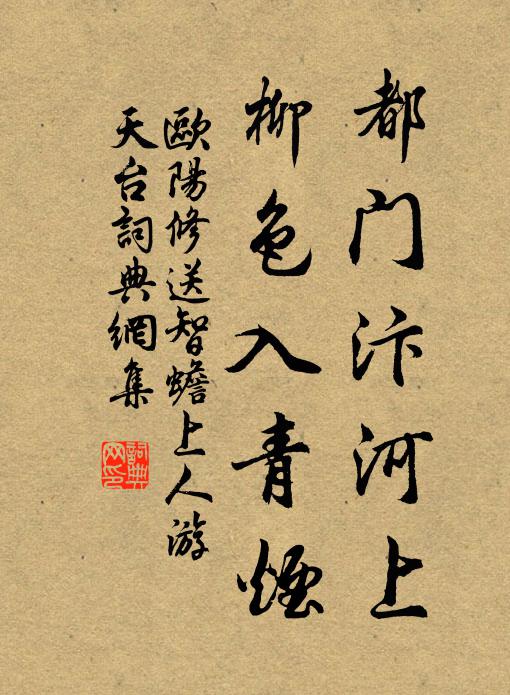 都门汴河上
柳色入青煙
歐陽修送智蟾上人游
天台詞典網集
詞典
网印